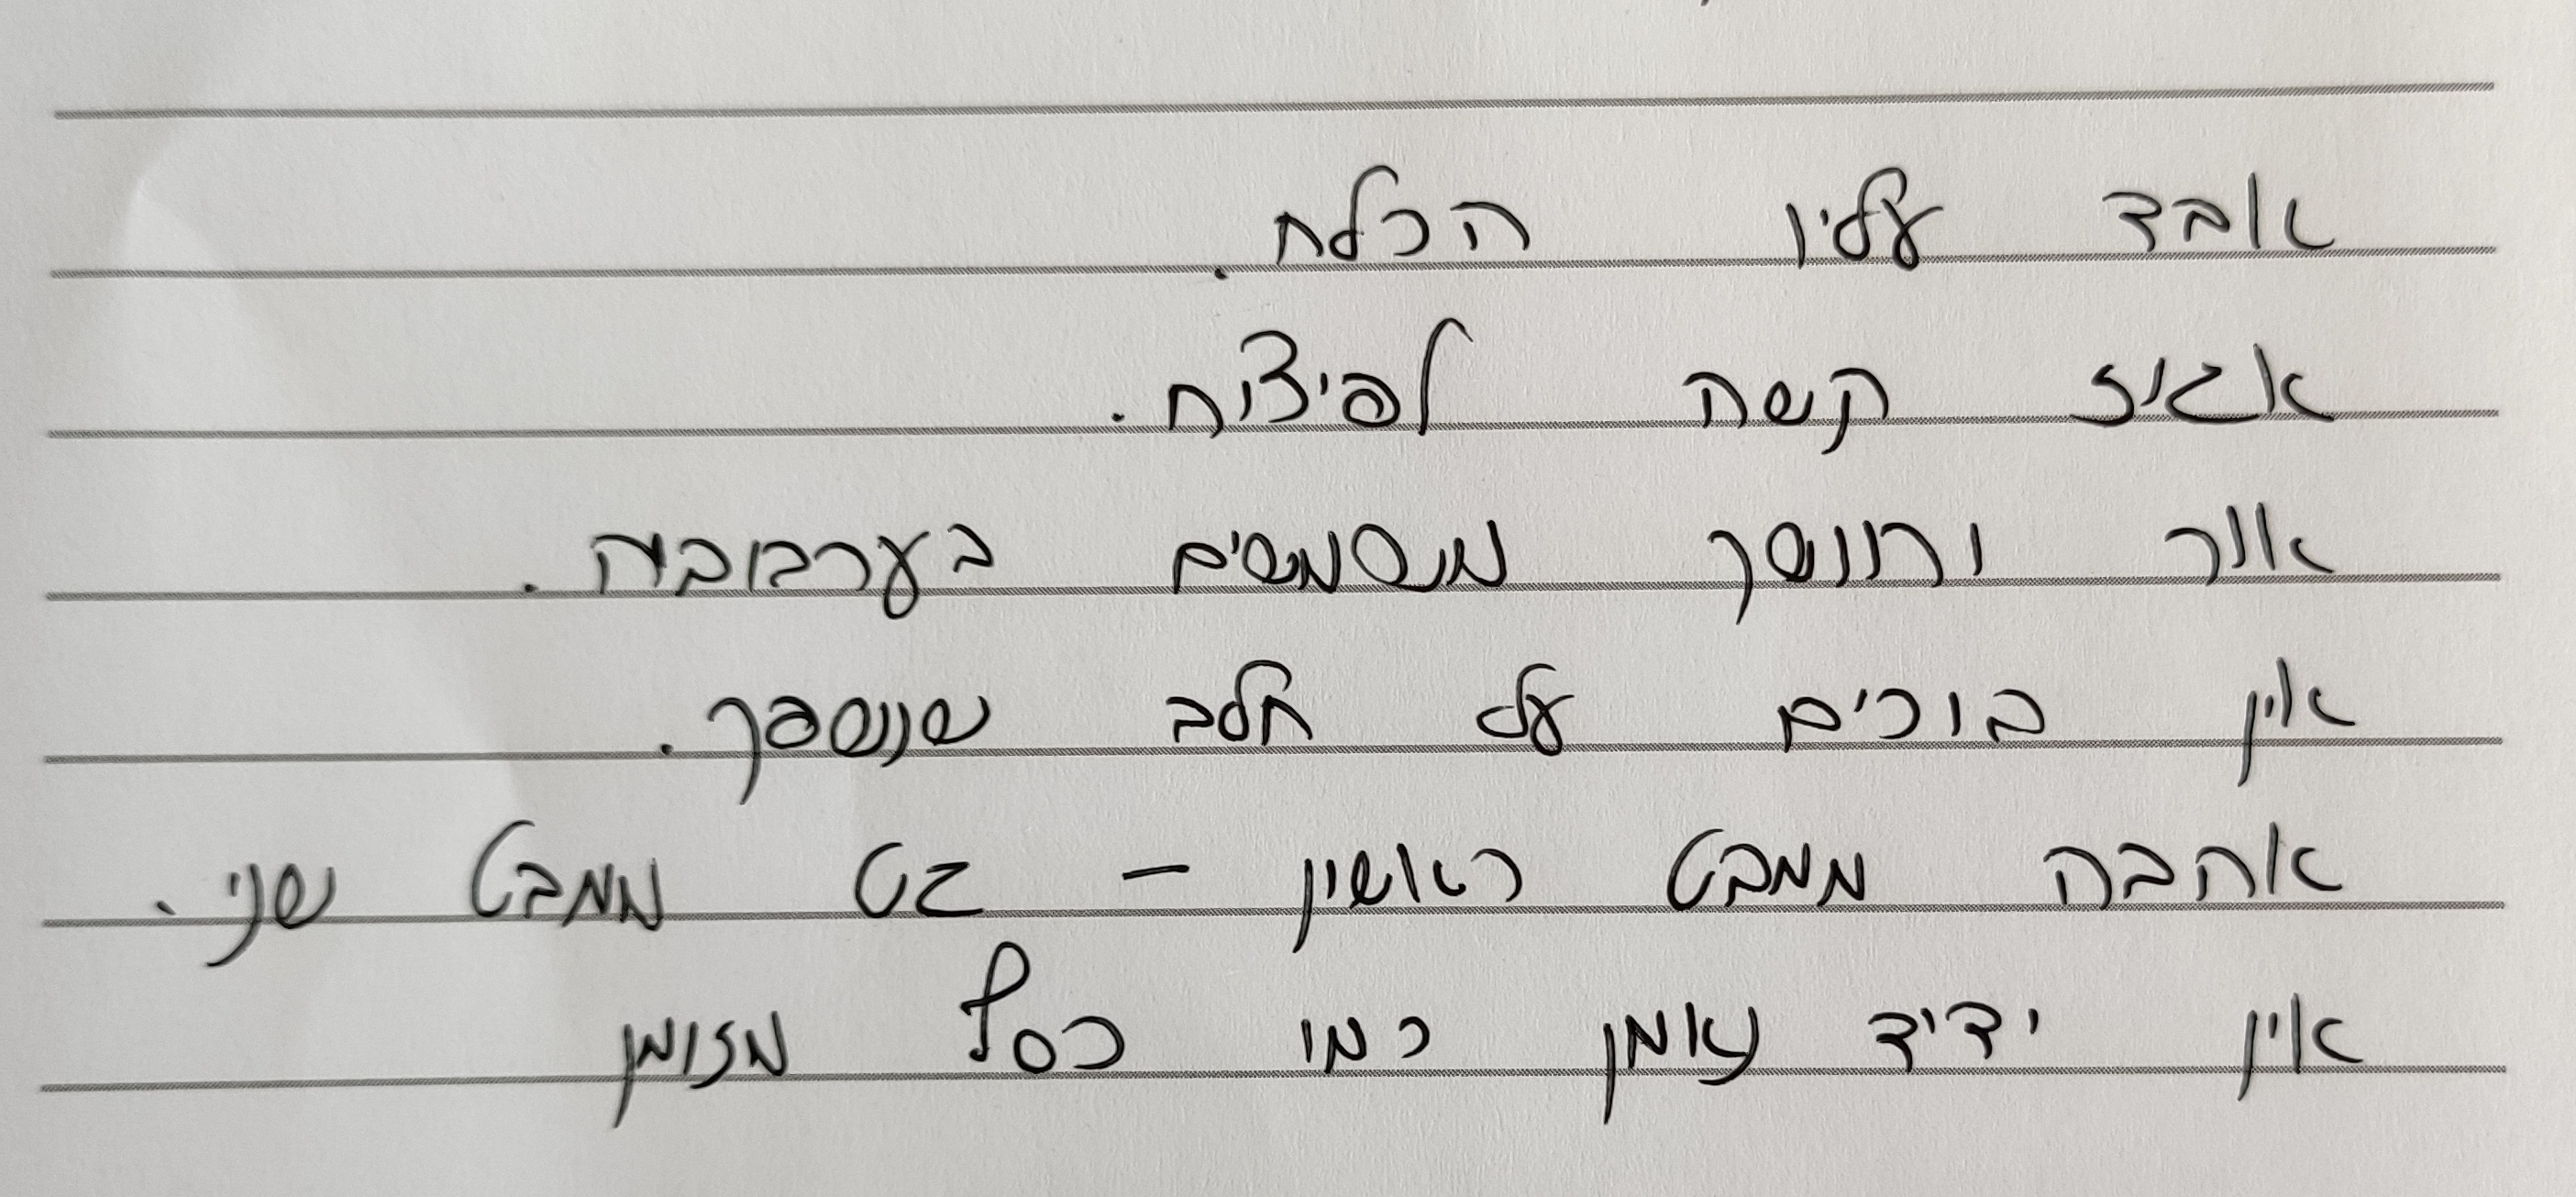 אבד עליו הכלח.
אגוז קשה לפיצוח.
אור וחושך משמשים בערבוביה.
אין בוכים על חלב שנשפך.
אהבה ממבט ראשון - גט ממבט שני.
אין ידיד נאמן כמו כסף מזומן